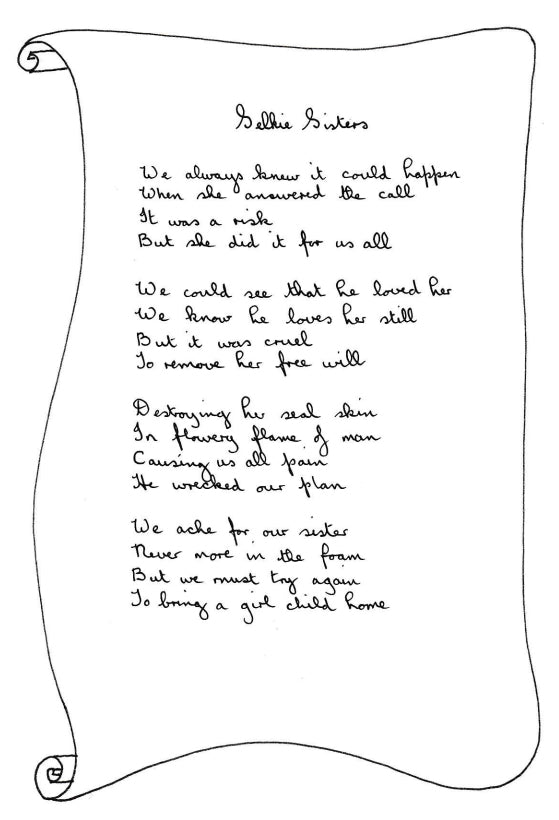 Selkie Sisters
We always knew it could happen
When she answered the call
It was a risk
But she did it for us all
We could see that he loved her
We know he loves her still
But it was cruel
To remove her free will
Destroying her seal skin
In flowery flame of man
Causing us all pain
He wrecked our plan
We ache for our sister
Never more in the foam
But we must try again
To bring a girl child home